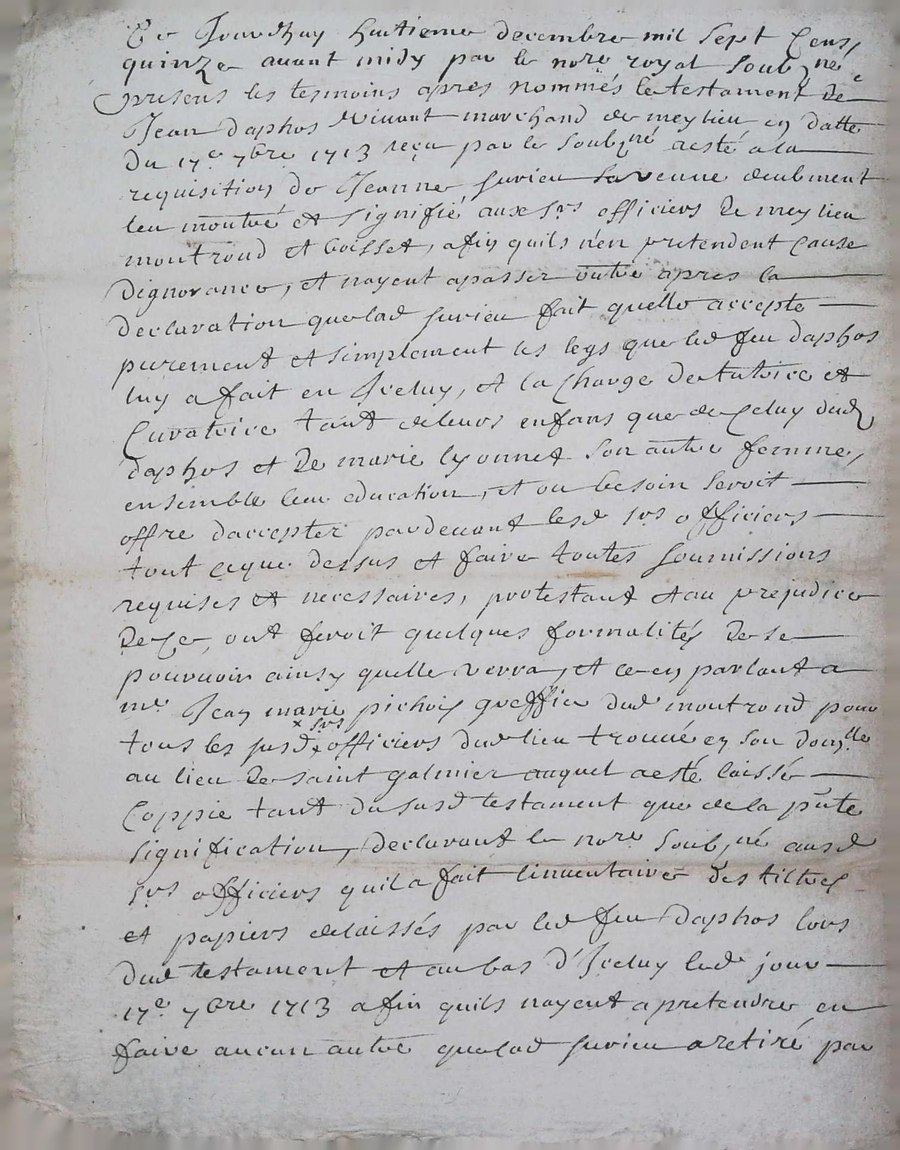 Ce Jourdhuy huitieme decembre mil sept Cens
quinze avant midy par le nore royal soubzne
presens les tesmoins apres nommés le testament de
Jean daphos vivant marchand de meylieu en datte
du 17e 7bre 1713 reçu par le soubzné a esté a la
requisition de Jeanne survieu sa veuve deubment
leu montré et signifié aux srs officiers de meylieu
montrond et boisset, afin quils nen pretendent cause
dignorance, et nayent a passer outre apres la
declaration que lad survieu fait quelle accepte
purement et simplement les legs que led feu daphos
luy a fait en Iceluy, et la Charge de tutrice et
Curatrice tant de leurs enfans que de Celuy dud
daphos et de marie lyonnet son autre femme,
ensemble leur education, et ou besoin seroit
offre daccepter pardevant lesd srs officiers
tout ceque dessus et faire toutes soumissions
requises et necessaires, protestant et au prejudice
de Ce, ont feroit quelques formalités de se
pourvoir ainsy quelle verra, et ce en parlant a
me Jean marie pichois greffier dud montrond pour
tous les susd x srs officiers dud lieu trouvé en son domlle
au lieu de saint galmier auquel a esté laissé
Coppie tant du susd testament que de la pnte
signification, declarant le nore soubzné ausd
srs officiers quil a fait linventaire des tiltres
et papiers delaissés par led feu daphos lors
dud testament et au bas d'Iceluy led jour
17e 7bre 1713 afin quils nayent a pretendre en
faire aucun autre que lad survieu a retiré par